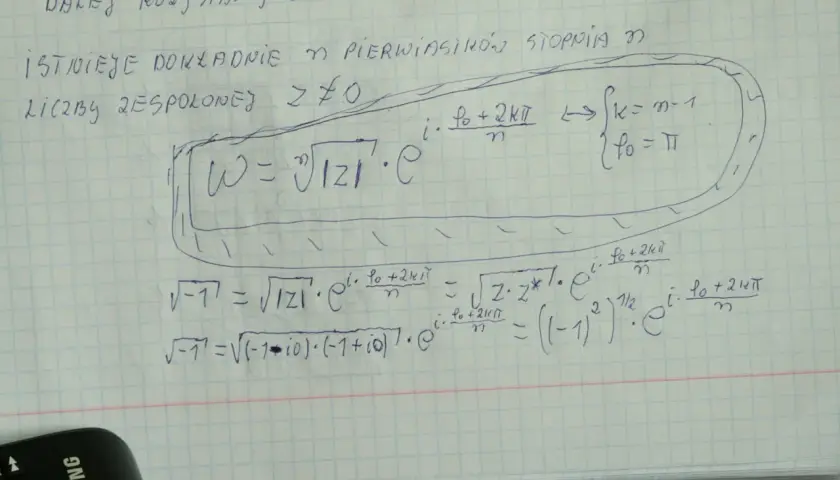 DALEJ
ISTNIEJE DOKŁADNIE n PIERWIASTKÓW STOPNIA n
LICZBY ZESPOLONEJ Z ≠ 0
W = ⁿ√|Z| · e^(i · (φ₀ + 2kπ)/n) ↔ { k = n-1
{ φ₀ = π
√-1 = √|Z| · e^(i · (φ₀ + 2kπ)/n) = √(Z · Z*) · e^(i · (φ₀ + 2kπ)/n)
√-1 = √((-1-i0)·(-1+i0)) · e^(i · (φ₀ + 2kπ)/n) = ((-1)²)^(1/2) · e^(i · (φ₀ + 2kπ)/n)
NG